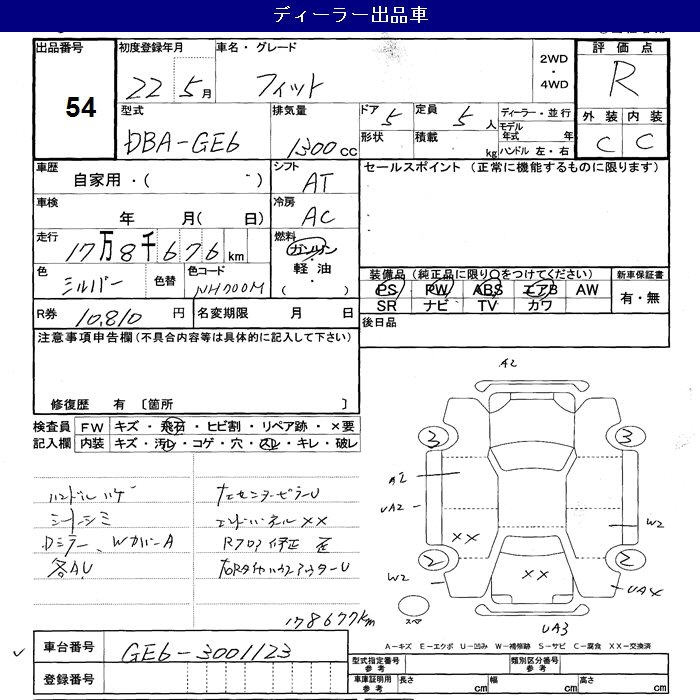 ディーラー出品車
出品番号 54
初度登録年月 22 5月
車名・グレード フィット
2WD・4WD
評価点 R
型式 DBA-GE6
排気量 1300cc
ドア 5 定員 5人
形状 積載 kg
ディーラー・並行
モデル年式 年
ハンドル 左・右
外装 内装
C C
車歴 自家用・( )
シフト AT
セールスポイント (正常に機能するものに限ります)
車検 年 月( 日)
冷房 AC
走行 17万8千676km
燃料 ガソリン・軽油・( )
色 シルバー 色替 色コード NH700M
装備品 (純正品に限り○をつけてください)
PS PW ABS エアB AW
SR ナビ TV カワ
新車保証書 有・無
R券 10,810円 名変期限 月 日
後日品
注意事項申告欄 (不具合内容等は具体的に記入して下さい)
修復歴 有 〔箇所 〕
検査員記入欄
FW キズ・飛石・ヒビ割・リペア跡・×要
内装 キズ・汚レ・コゲ・穴・スレ・キレ・破レ
ハンドルハゲ
シートシミ
Dミラー、WカバーA
各AU
エンドパネルXX
Rフロア修正
178677km
A2
3 3
A2
UA2
XX
W2
2 2
W2
XX
UA4
スマ
UA3
A-キズ E-エクボ U-凹み W-補修跡 S-サビ C-腐食 XX-交換済
車台番号 GE6-3001123
登録番号
型式指定番号 参考
類別区分番号 参考
車庫証明用 参考 長さ cm 幅 cm 高さ cm